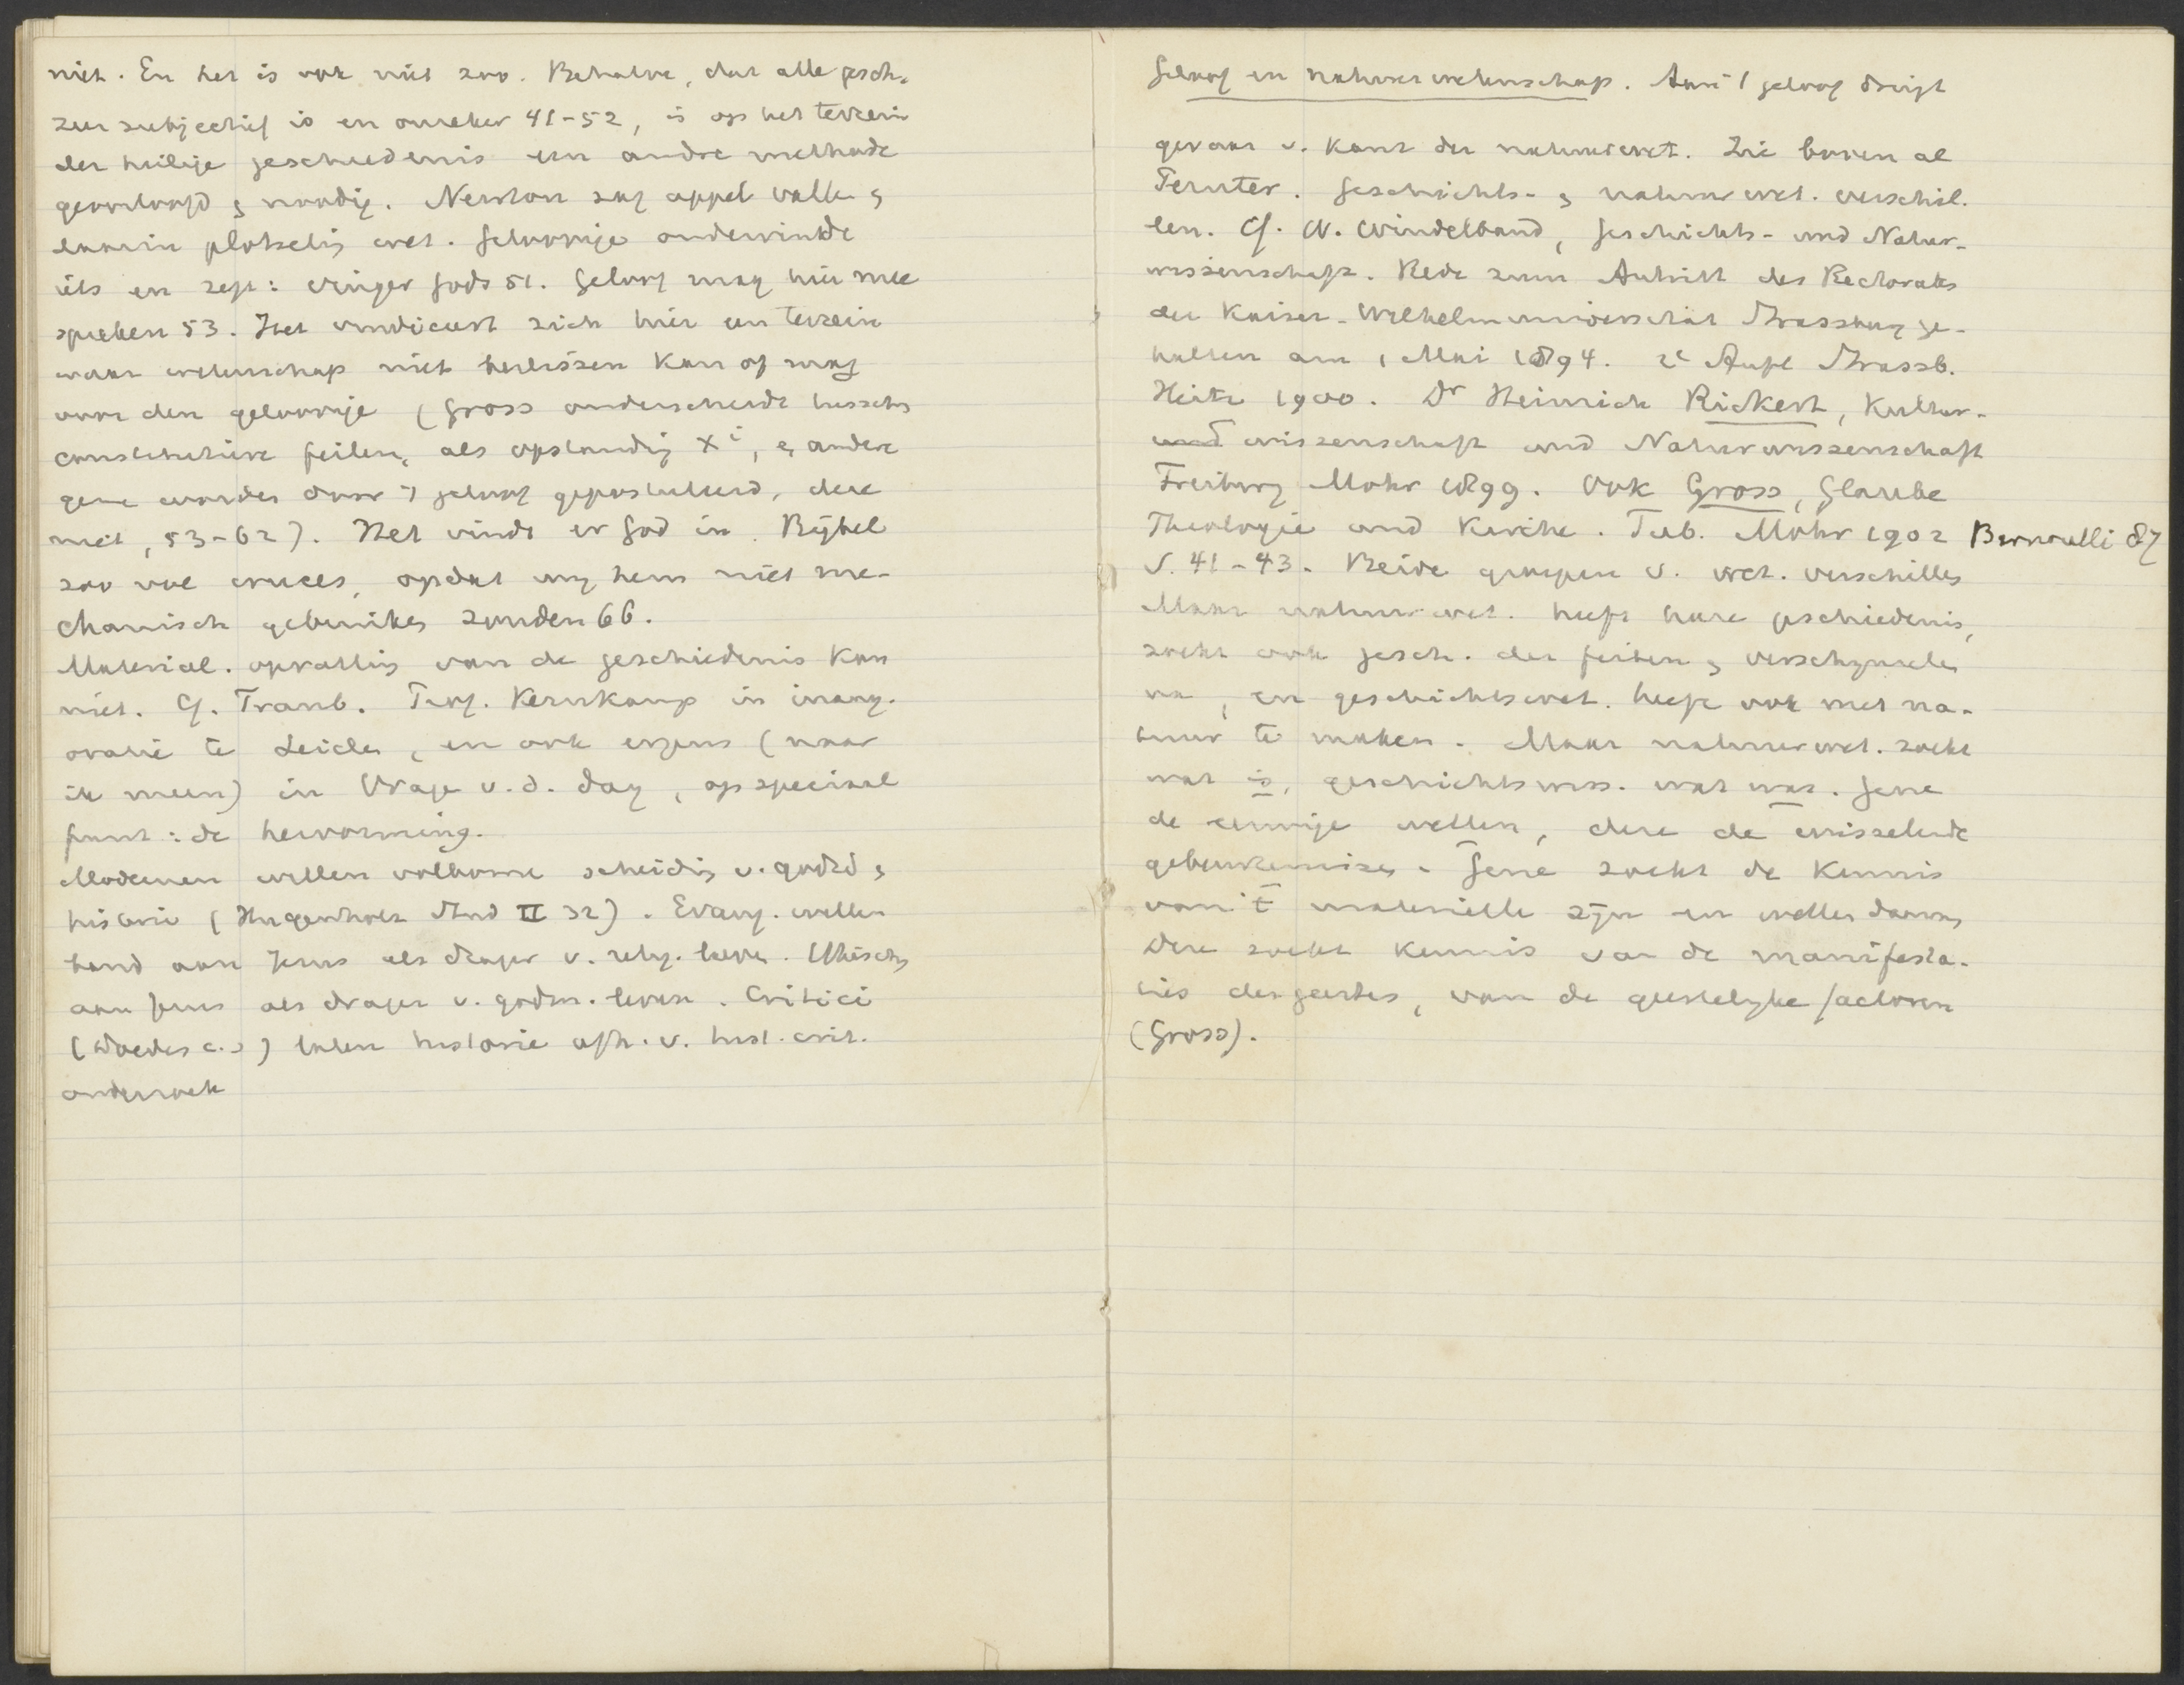 niet. En het is ook niet zoo. Behalve, dat alle gesch.
zeer subjectief is en onzeker 41-52, is op het terrein
der heilige geschiedenis een andre methode
geoorloofd & noodig. Newton zag appel vallen &
daarin plotselig wet. Geloovige ondervindt
iets en zegt: vinger Gods 51. Geloof mag hier mee
spreken 53. Het vindiceert zich hier een terrein
waar wetenschap niet beslissen kan of mag
voor den geloovige (Gross onderscheidt tusschen
constitutieve feiten, als opstanding Xi, & andere
gene worden door 't geloof gepostuleerd, deze
niet, 53-62). Het vindt er God in. Bijbel
zoo vol cruces, opdat wij hem niet me-
chanisch gebruiken zouden 66.
Material. opvatting van de geschiedenis kan
niet. Cf. Traub. Prof. Kernkamp in inaug.
oratie te Leiden, en ook ergens (naar
ik meen) in Vrage v.d. dag, op speciaal
punt: de hervorming.
Modernen willen volkome scheiding v. godsd &
historie (Hugenholtz Stud II 32). Evang. willen
band aan Jezus als drager v. relig. leven. Ethischen
aan Jezus als drager v. godm. leven. Critici
(Doedes c.s) laten historie afh. v. hist. crit.
onderzoek
Geloof en natuurwetenschap. Aan 't geloof dreigt
gevaar v. kant der natuurwet. Zie boven al
Fernter. Geschichts- & natuurwet. verschil-
len. Cf. W. Windelband, Geschichts- und Natur-
wissenschaft. Rede zum Antritt des Rectorats
der Kaiser-Wilhelmuniversität Strassburg ge-
halten am 1 Mai 1894. 2e Aufl Strassb.
Heitz 1900. Dr Heinrich Rickert, Kultur-
und wissenschaft und Naturwissenschaft
Freiburg Mohr 1899. Ook Gross, Glaube
Theologie und Kirche. Tub. Mohr 1902 Bernoulli 87
S. 41-43. Beide groepen v. wet. verschillen
Maar natuurwet. heeft hare geschiedenis,
zoekt ook gesch. der feiten & verschijnselen
na, en geschichtswet. heeft ook met na-
tuur te maken. Maar natuurwet. zoekt
wat is, geschichtswiss. wat was. Gene
de eeuwige wetten, deze de wisselende
gebeurtenissen. Gene zoekt de kennis
van 't materielle zijn en wetten daarvan
Deze zoekt kennis van de manifesta-
ties des geestes, van de geestelijke factoren
(Gross).